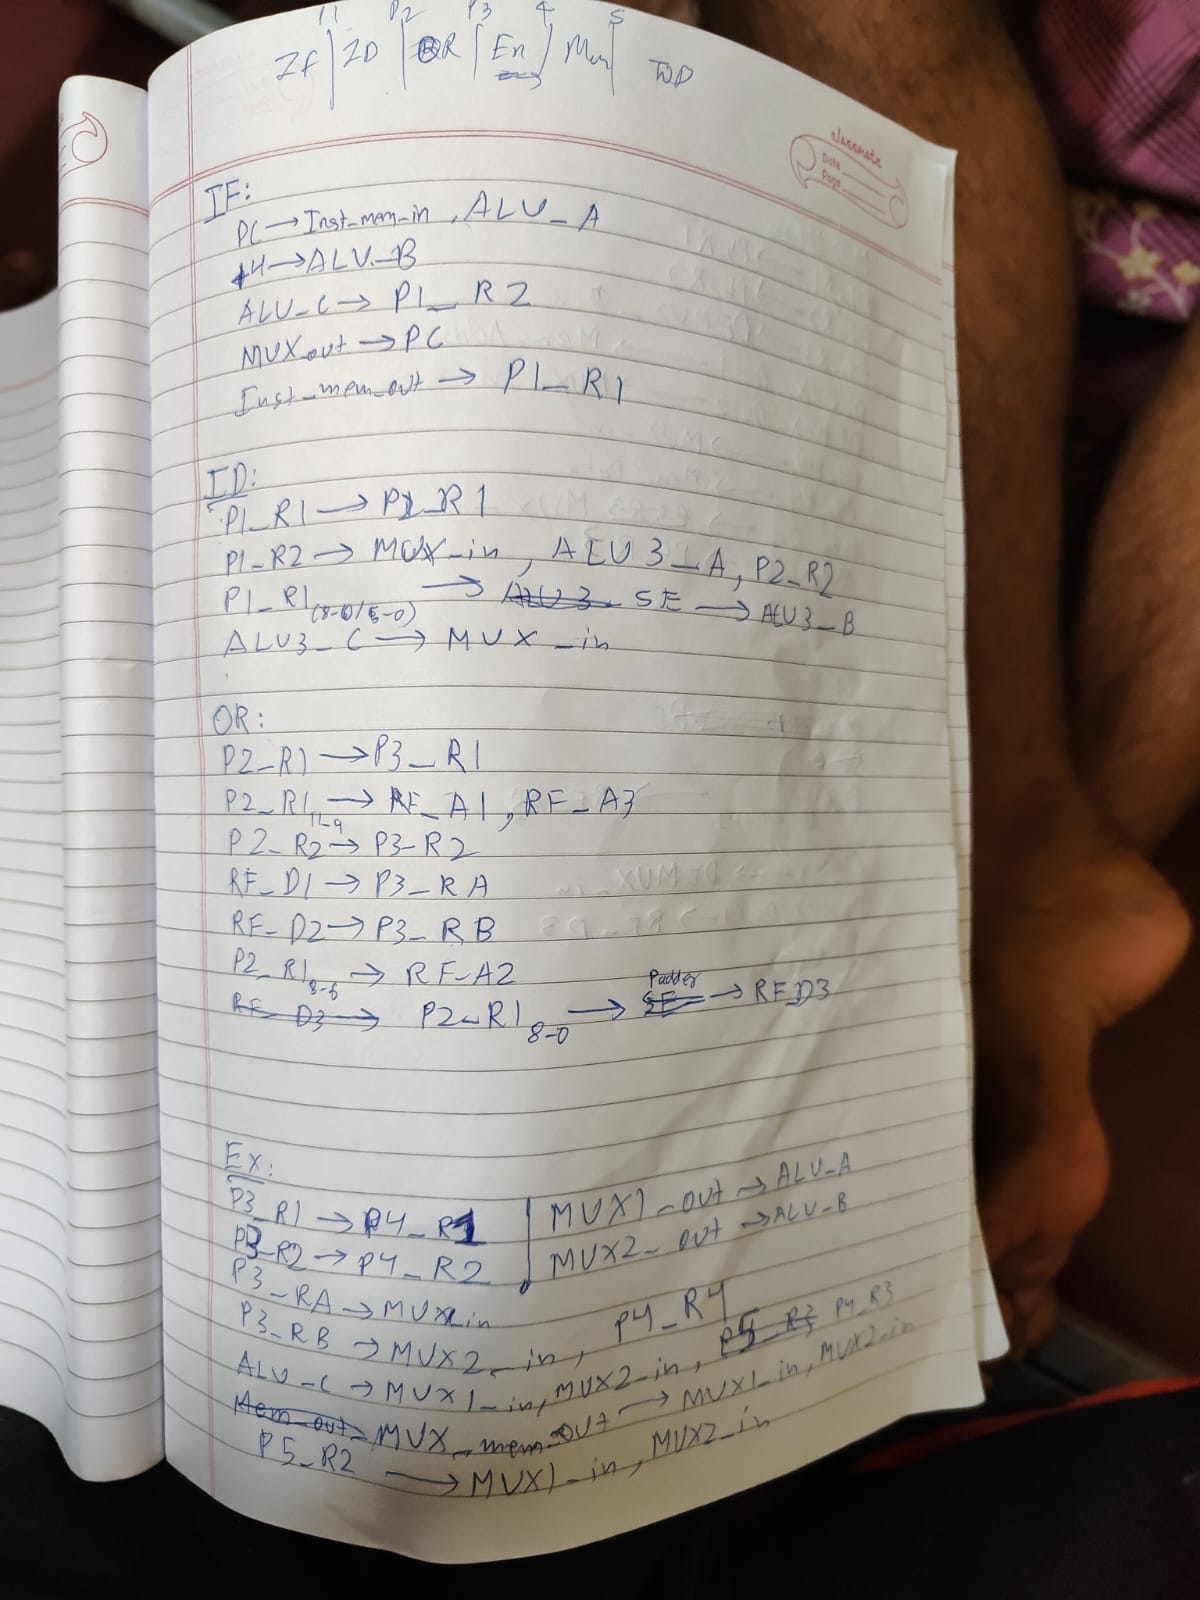 P2 P3 4 5
IF | ID | OR | Ex | Mem |
classmate
Date
Page
IF:
PC → Inst_mem_in, ALU_A
+4 → ALU_B
ALU_C → P1_R2
MUX_out → PC
Inst_mem_out → P1_R1
ID:
P1_R1 → P2_R1
P1_R2 → MUX_in, ALU3_A, P2_R2
P1_R1 (8-0/5-0) → SE → ALU3_B
ALU3_C → MUX_in
OR:
P2_R1 → P3_R1
P2_R1 11-9 → RF_A1, RF_A3
P2_R2 → P3_R2
RF_D1 → P3_RA
RF_D2 → P3_RB
P2_R1 8-6 → RF_A2
RF_D3 → P2_R1 8-0 → Padder → RF_D3
Ex:
P3_R1 → P4_R1 | MUX1_out → ALU_A
P3_R2 → P4_R2 | MUX2_out → ALU_B
P3_RA → MUX1_in
P3_RB → MUX2_in, P4_R4
ALU_C → MUX1_in, MUX2_in, P5_R3 P4_R3
Mem_out MUX_mem_out → MUX1_in, MUX2_in
P5_R2 → MUX1_in, MUX2_in